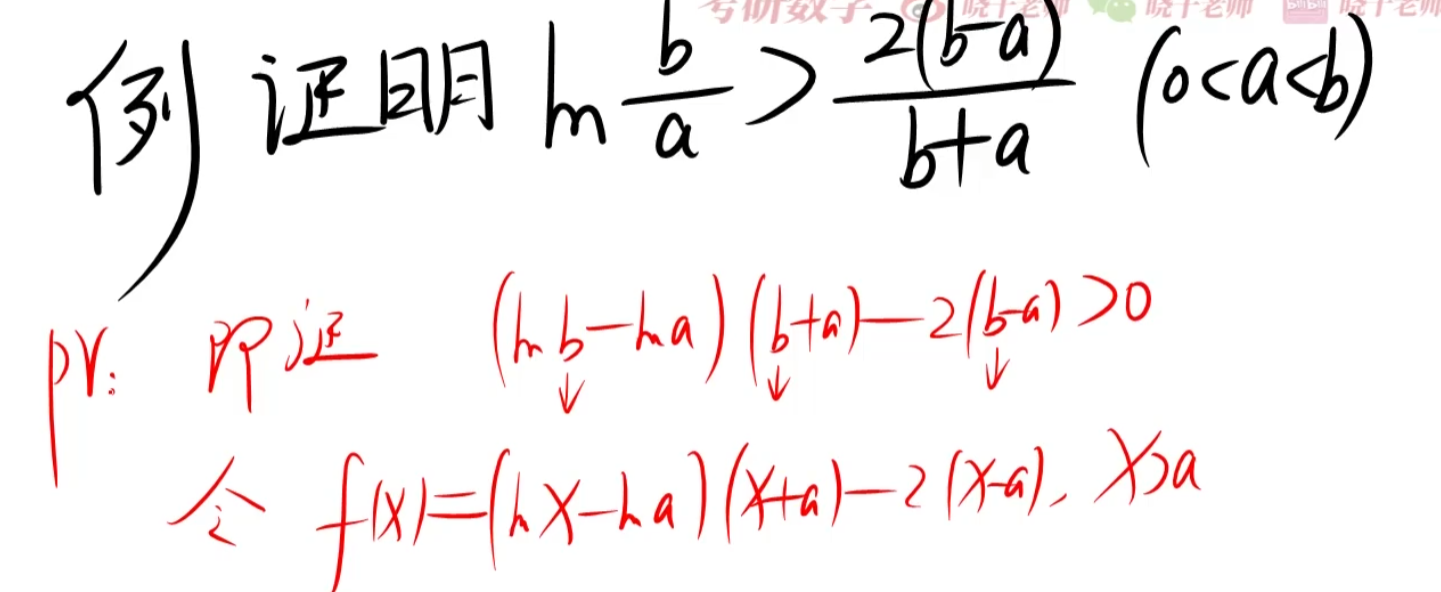 考研数学 晓千老师 晓千老师 bilibili 晓千老师
例 证明 ln b/a > 2(b-a)/(b+a) (0<a<b)
pr: 即证 (ln b - ln a)(b+a) - 2(b-a) > 0
↓ ↓ ↓
令 f(x) = (ln x - ln a)(x+a) - 2(x-a), x>a